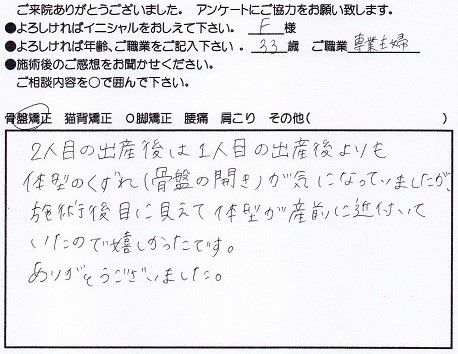 ご来院ありがとうございました。 アンケートにご協力をお願い致します。
●よろしければイニシャルをおしえて下さい。 F 様
●よろしければ年齢、ご職業をご記入下さい。 33 歳 ご職業 専業主婦
●施術後のご感想をお聞かせください。
ご相談内容を○で囲んで下さい。
骨盤矯正 猫背矯正 O脚矯正 腰痛 肩こり その他( )
2人目の出産後は1人目の出産後よりも
体型のくずれ(骨盤の開き)が気になっていましたが、
施術後目に見えて体型が産前に近付いて
いたので嬉しかったです。
ありがとうございました。